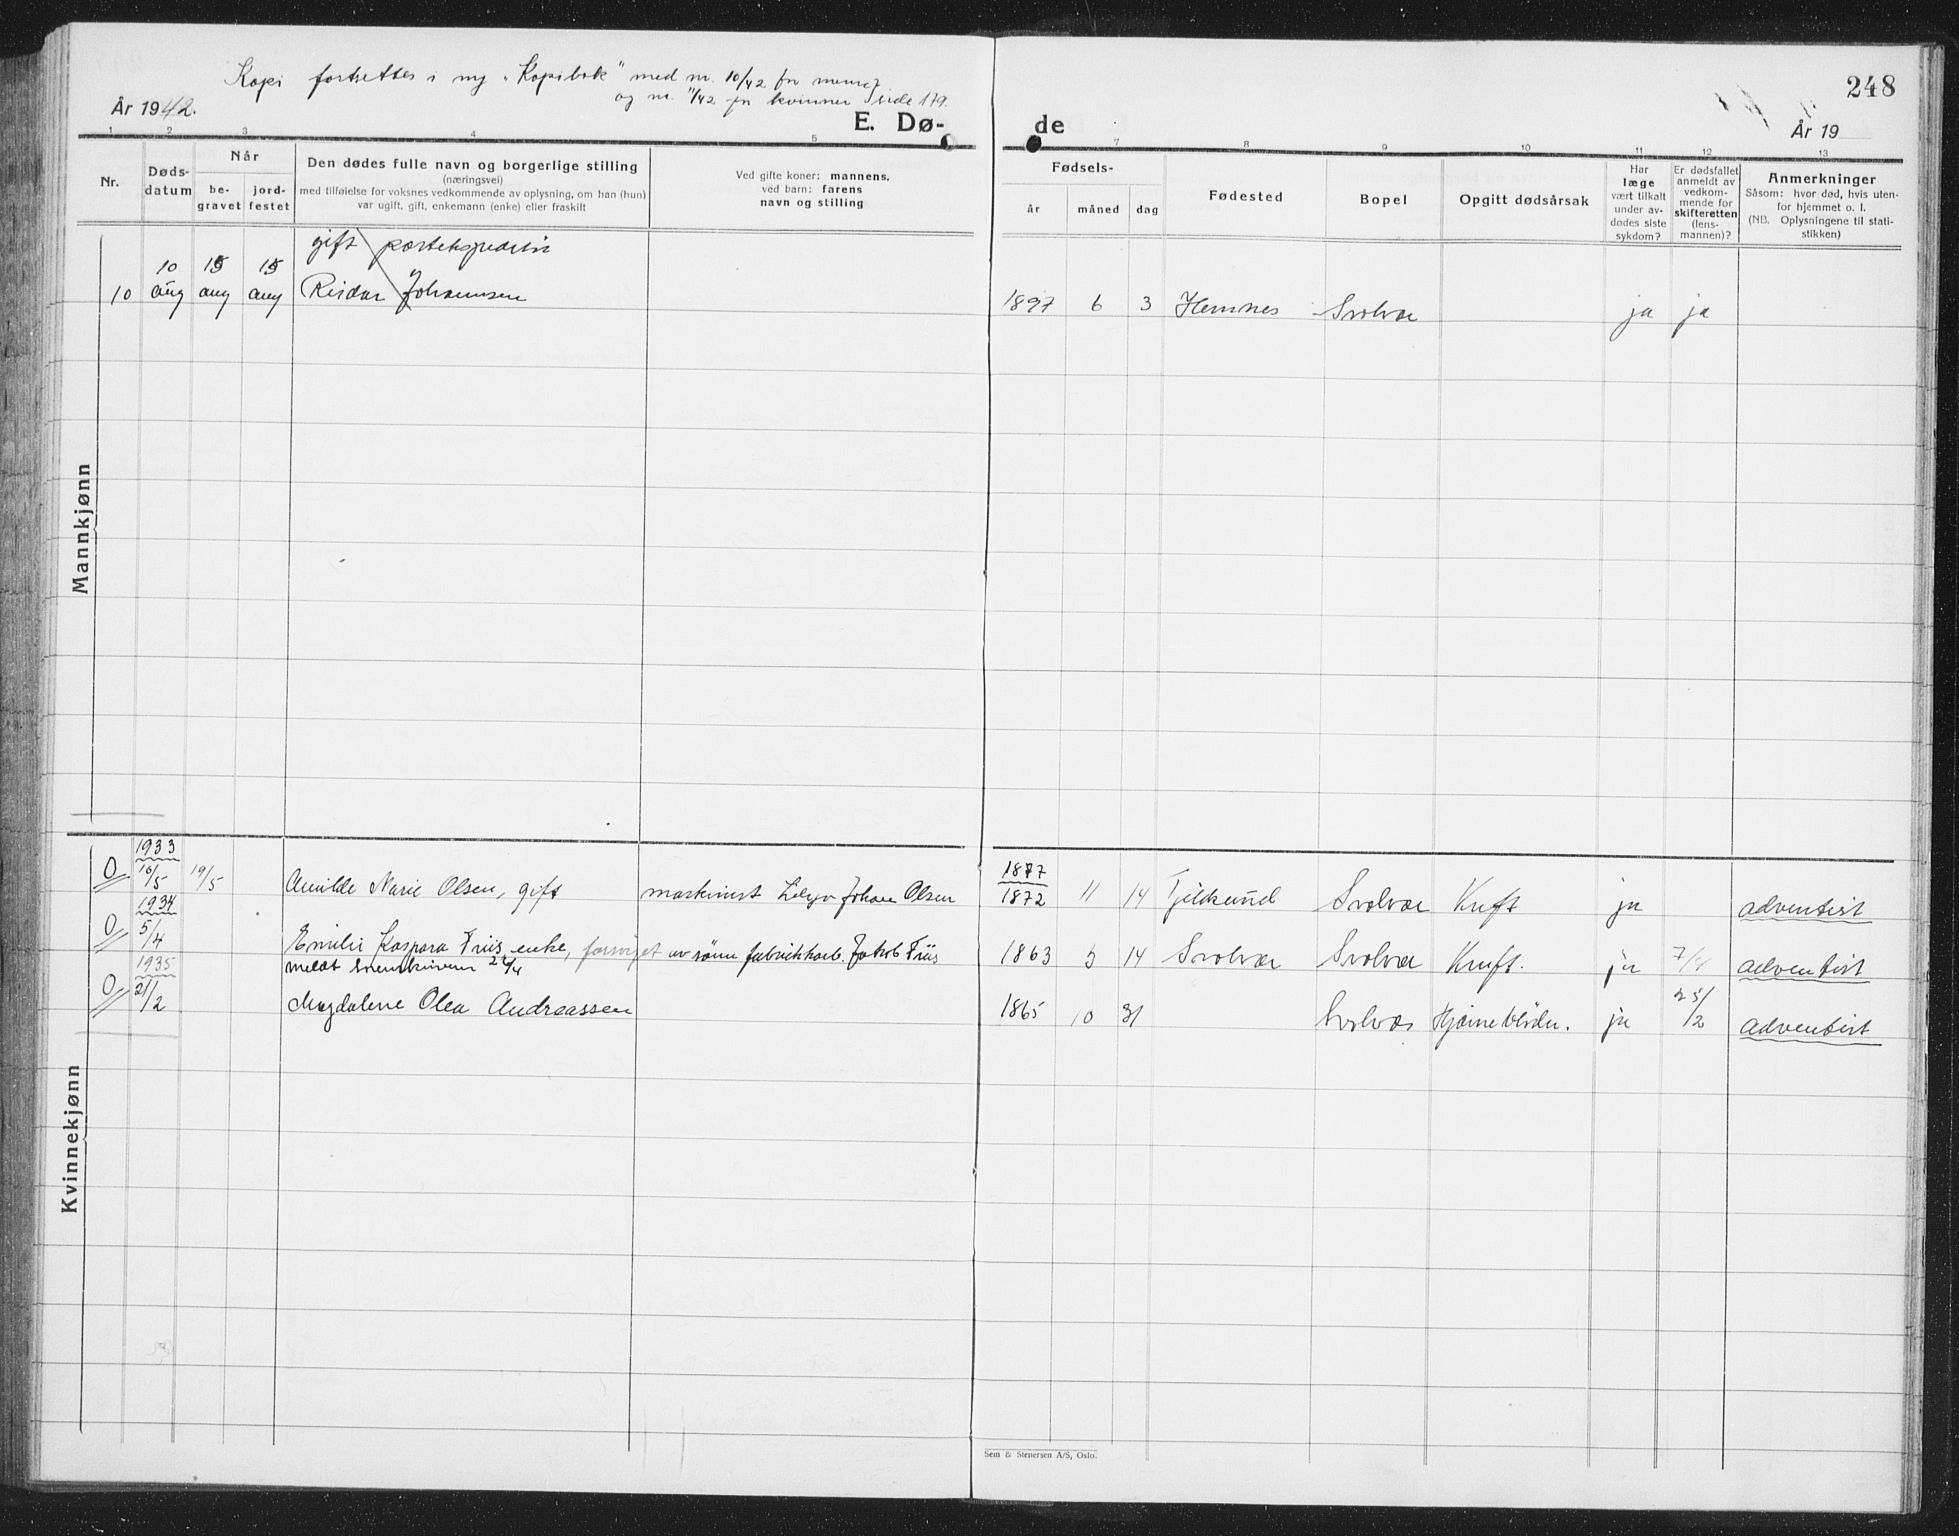 Kopi fortsettes i ny "Kopibok" med nr. 10/42 for menn
og nr. 11/42 for kvinner side 179.
248
År 1942.
E. Dø-
de
År 19
1 2 3 4 5 7 8 9 10 11 12 13
Nr.
Døds-
datum
Når
be-
gravet
jord-
festet
Den dødes fulle navn og borgerlige stilling
(næringsvei)
med tilføielse for voksnes vedkommende av oplysning, om han (hun)
var ugift, gift, enkemann (enke) eller fraskilt
Ved gifte koner: mannens,
ved barn: farens
navn og stilling
Fødsels-
år måned dag
Fødested
Bopel
Opgitt dødsårsak
Har
læge
vært tilkalt
under av-
dødes siste
sykdom?
Er dødsfallet
anmeldt av
vedkom-
mende for
skifteretten
(lens-
mannen)?
Anmerkninger
Såsom: hvor død, hvis uten-
for hjemmet o. l.
(NB. Oplysningene til stati-
stikken)
Mannkjønn
gift
10 15 15
10 aug aug aug Reidar Johannsen 1897 6 3 Hemnes Svolvær ja ja
Kvinnekjønn
1933 1877
0 16/5 19/5 Amilde Marie Olsen, gift maskinist Johan Olsen 1872 11 14 Tjeldsund Svolvær Kreft ja adventist
1934
0 5/4 Emilie Kaspara Friis enke, forsørget av sønn fabrikkarb. Jakob Friis 1863 5 14 Svolvær Svolvær Kreft. ja 7/4 adventist
1935
0 21/2 Magdalene Olea Andreassen 1865 10 31 Svolvær ja 25/2 adventist
Sem & Stenersen A/S, Oslo.